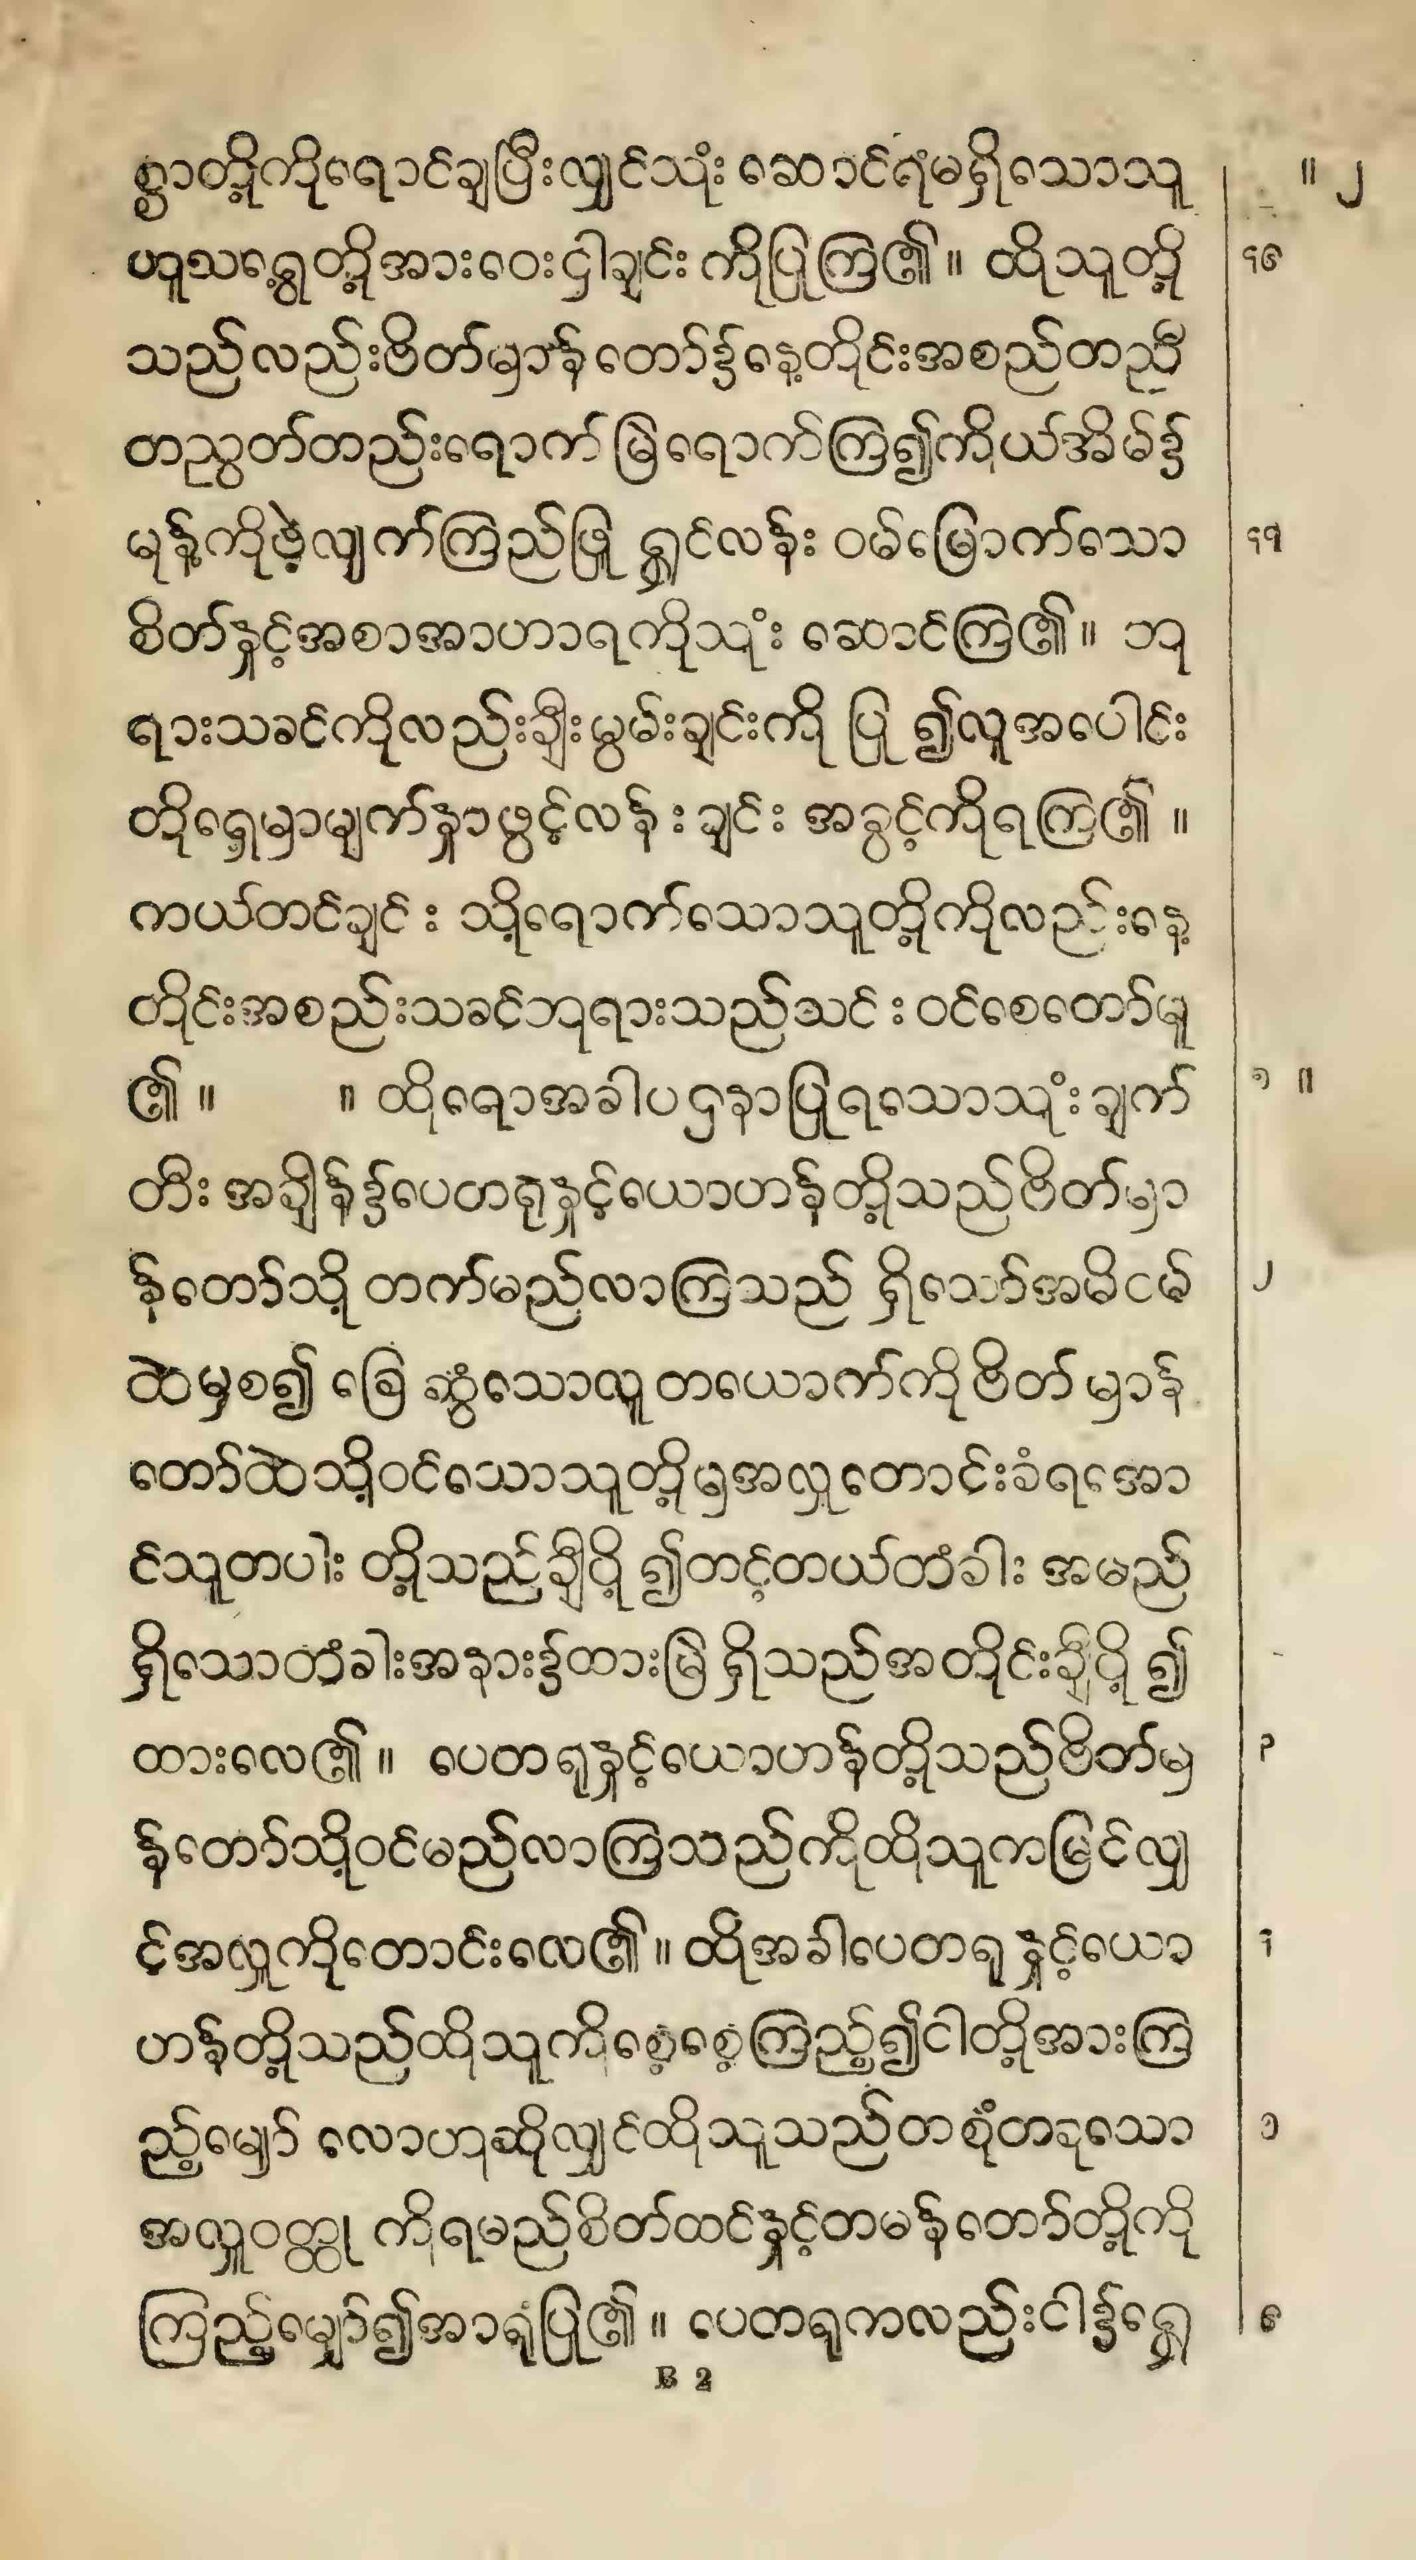 စ္စာတို့ကိုရောင်ချပြီးလျှင်သုံး ဆောင်ရံမရှိသောသူ ။ ၂
ဟူသရွေ့တို့အားဝေးဌါချင်း ကိုပြုကြ၏။ ထိုသူတို့ ၄၆
သည်လည်းဗိတ်မှာန်တော်၌နေ့တိုင်းအစည်တညီ
တညွတ်တည်းရောက်မြဲရောက်ကြ၍ကိုယ်အိမ်၌
မုန့်ကိုဖဲ့လျက်ကြည်ဖြူ ရွှင်လန်း ဝမ်မြောက်သော ၄၇
စိတ်နှင့်အစာအာဟာရကိုသုံး ဆောင်ကြ၏။ ဘု
ရားသခင်ကိုလည်းချီးမွမ်းချင်းကို ပြု ၍လူအပေါင်း
တို့ရှေ့မှာမျက်နှာဖွင့်လန်း ချင်း အခွင့်ကိုရကြ၏ ။
ကယ်တင်ချင်း သို့ရောက်သောသူတို့ကိုလည်းနေ့
တိုင်းအစည်းသခင်ဘုရားသည်သင်း ဝင်စေတော်မူ
၏။ ။ ထိုရောအခါပဌနာပြုရသောသုံးချက် ၁ ။
တီး အချိန်၌ပေတရုနှင့်ယောဟန်တို့သည်ဗိတ်မှာ
န်တော်သို့ တက်မည်လာကြသည် ရှိသော်အမိဝမ် ၂
ထဲမှစ၍ ခြေ ဆွံသောလူတယောက်ကိုဗိတ်မှာန်
တော်ထဲသို့ဝင်သောသူတို့မှအလှူတောင်းခံရအော
င်သူတပါး တို့သည်ချီပို့ ၍တင့်တယ်တံခါး အမည်
ရှိသောတံခါးအနား၌ထားမြဲ ရှိသည်အတိုင်းချီပို့ ၍
ထားလေ၏။ ပေတရုနှင့်ယောဟန်တို့သည်ဗိတ်မှ ၃
န်တော်သို့ဝင်မည်လာကြသည်ကိုထိုသူကမြင်လျှ
င်အလှူကိုတောင်းလေ၏။ ထိုအခါပေတရု နှင့်ယော ၄
ဟန်တို့သည်ထိုသူကိုစေ့စေ့ကြည့်၍ငါတို့အားကြ
ည့်မျှော် လောဟုဆိုလျှင်ထိုသူသည်တစုံတခုသော ၅
အလှူဝတ္ထု ကိုရမည်စိတ်ထင်နှင့်တမန်တော်တို့ကို
ကြည့်မျှော်၍အာရုံပြု၏။ ပေတရုကလည်းငါ၌ရွှေ ၆
B 2